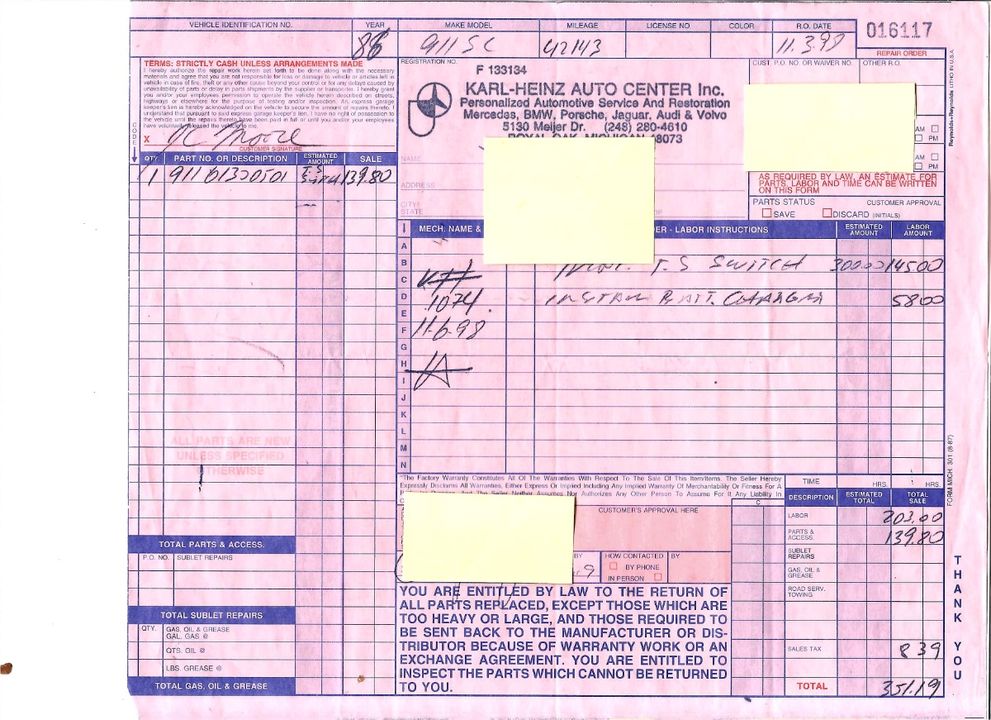 VEHICLE IDENTIFICATION NO. YEAR MAKE MODEL MILEAGE LICENSE NO. COLOR R.O. DATE 016117
86 911 SC 42143 11.3.98
REPAIR ORDER
TERMS: STRICTLY CASH UNLESS ARRANGEMENTS MADE
I hereby authorize the repair work herein set forth to be done along with the necessary
materials and agree that you are not responsible for loss or damage to vehicle or articles left in
vehicle in case of fire, theft or any other cause beyond your control or for any delays caused by
unavailability of parts or delay in parts shipments by the supplier or transporter. I hereby grant
you and/or your employees permission to operate the vehicle herein described on streets,
highways or elsewhere for the purpose of testing and/or inspection. An express garage
keeper's lien is hereby acknowledged on the vehicle to secure the amount of repairs thereto. I
understand that pursuant to said express garage keeper's lien, I have no right of possession to
the vehicle until the repairs thereto have been paid in full or until you and/or your employees
have voluntarily released the vehicle to me.
X
CUSTOMER SIGNATURE
REGISTRATION NO.
F 133134
KARL-HEINZ AUTO CENTER Inc.
Personalized Automotive Service And Restoration
Mercedes, BMW, Porsche, Jaguar, Audi & Volvo
5130 Meijer Dr. (248) 280-4610
ROYAL OAK, MICHIGAN 48073
NAME
ADDRESS
CITY/
STATE
CUST. P.O. NO. OR WAIVER NO. OTHER R.O.
AM
PM
AM
PM
AS REQUIRED BY LAW, AN ESTIMATE FOR
PARTS, LABOR AND TIME CAN BE WRITTEN
ON THIS FORM
PARTS STATUS CUSTOMER APPROVAL
SAVE DISCARD (INITIALS)
CODE
QTY. PART NO. OR DESCRIPTION ESTIMATED AMOUNT SALE
1 91161320501 T.S 139.80
MECH. NAME & - LABOR INSTRUCTIONS ESTIMATED AMOUNT LABOR AMOUNT
A
B
C
D
E
F
G
H
I
J
K
L
M
N
T.S SWITCH 300.00 145.00
1074 INSTALL BATT. CHARGER 58.00
11-6-98
ALL PARTS ARE NEW
UNLESS SPECIFIED
OTHERWISE
"The Factory Warranty Constitutes All Of The Warranties With Respect To The Sale Of This Item/Items. The Seller Hereby
Expressly Disclaims All Warranties, Either Express Or Implied Including Any Implied Warranty Of Merchantability Or Fitness For A
CUSTOMER'S APPROVAL HERE
BY HOW CONTACTED BY
BY PHONE
IN PERSON
TIME HRS. HRS.
DESCRIPTION ESTIMATED TOTAL TOTAL SALE
LABOR 203.00
PARTS & ACCESS. 139.80
SUBLET REPAIRS
GAS, OIL & GREASE
ROAD SERV. TOWING
SALES TAX 8 39
TOTAL 351.19
TOTAL PARTS & ACCESS.
P.O. NO. SUBLET REPAIRS
TOTAL SUBLET REPAIRS
QTY. GAS, OIL & GREASE
GAL. GAS @
QTS. OIL @
LBS. GREASE @
TOTAL GAS, OIL & GREASE
YOU ARE ENTITLED BY LAW TO THE RETURN OF
ALL PARTS REPLACED, EXCEPT THOSE WHICH ARE
TOO HEAVY OR LARGE, AND THOSE REQUIRED TO
BE SENT BACK TO THE MANUFACTURER OR DIS-
TRIBUTOR BECAUSE OF WARRANTY WORK OR AN
EXCHANGE AGREEMENT. YOU ARE ENTITLED TO
INSPECT THE PARTS WHICH CANNOT BE RETURNED
TO YOU.
FORM MICH. 301 (8-87)
THANK YOU